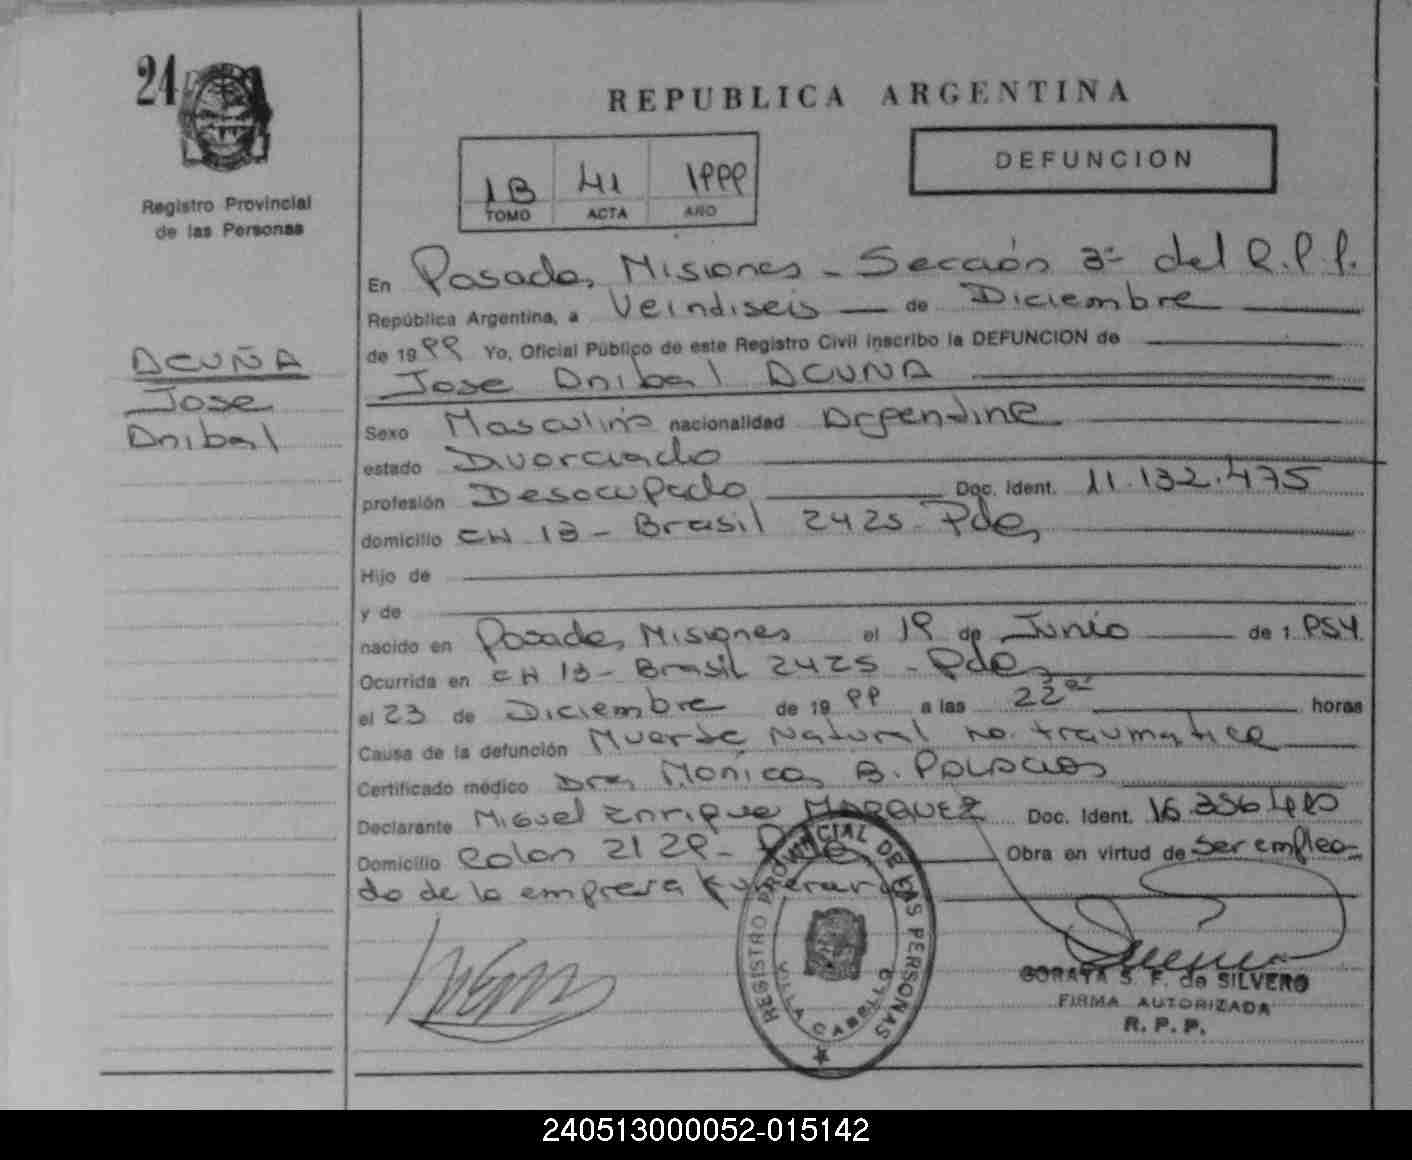 24
REPUBLICA ARGENTINA
DEFUNCION
1B 41 1999
TOMO ACTA AÑO
Registro Provincial
de las Personas
En Posadas, Misiones - Sección 3ª del R.P.P.
República Argentina, a Veindiseis de Diciembre
de 1999 Yo, Oficial Público de este Registro Civil inscribo la DEFUNCION de
ACUÑA
Jose
Anibal
Jose Anibal ACUÑA
Sexo Masculino nacionalidad Argentina
estado Divorciado
profesión Desocupado Doc. Ident. 11.132.475
domicilio CH 13 - Brasil 2425 Pdas
Hijo de
y de
nacido en Posadas, Misiones el 19 de Junio de 1.954
Ocurrida en CH 13 - Brasil 2425 - Pdas
el 23 de Diciembre de 1999 a las 22 horas
Causa de la defunción Muerte Natural no traumatica
Certificado médico Dra Monica B. Palacios
Declarante Miguel Enrique MARQUEZ Doc. Ident.
Domicilio Colon 2129 - Pdas Obra en virtud de ser emplea-
do de la empresa funeraria
REGISTRO PROVINCIAL DE LAS PERSONAS
VILLA CABELLO
SORAYA S. F. de SILVERO
FIRMA AUTORIZADA
R. P. P.
240513000052-015142